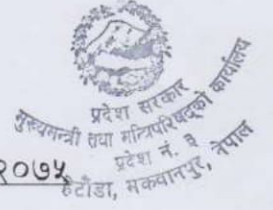 प्रदेश सरकार
मुख्यमन्त्री तथा मन्त्रिपरिषद्को कार्यालय
प्रदेश नं. ३
हेटौंडा, मकवानपुर, नेपाल
२०७५